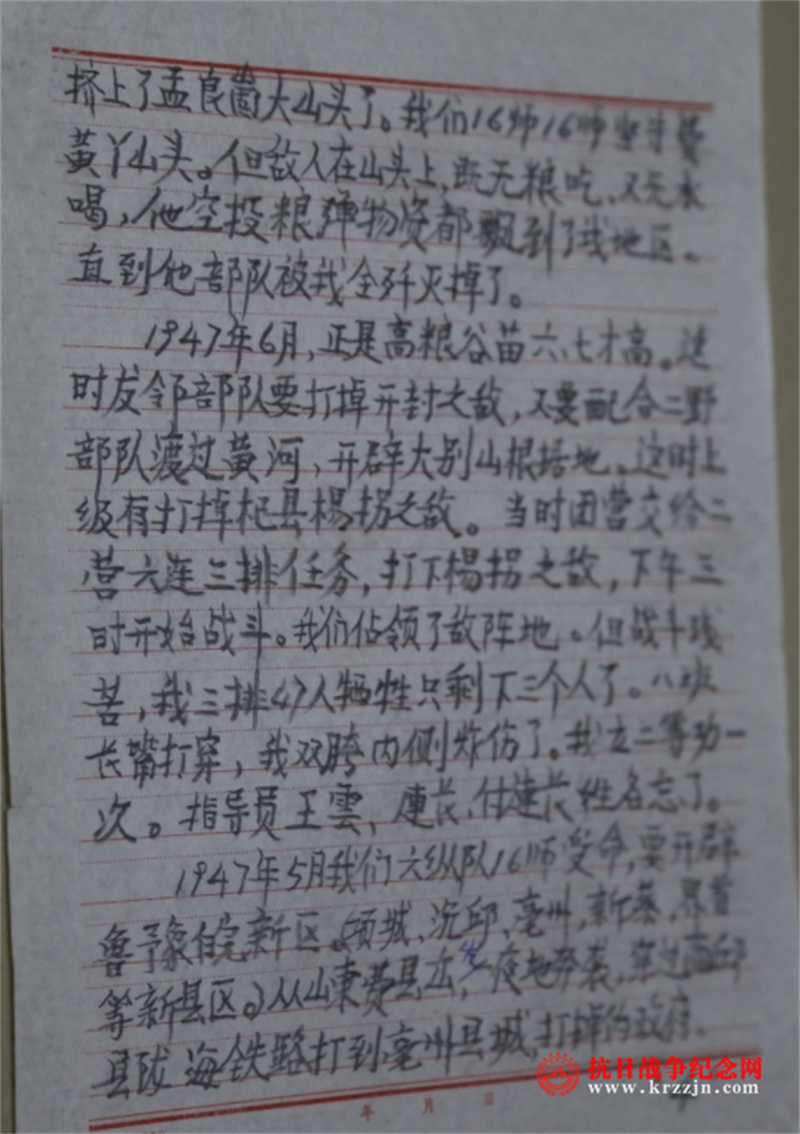 挤上了孟良崮大山头了。我们16师16师坚守
黄丫山头。但敌人在山头上,既无粮吃、又无水
喝,他空投粮弹物资都飘到了我地区。
直到他部队被我全歼灭掉了。
1947年6月,正是高粮谷苗六、七才高。这
时友邻部队要打掉开封之敌,又要配合二野
部队渡过黄河,开辟大别山根据地。这时上
级有打掉杞县杨拐之敌。当时团营交给二
营六连三排任务,打下杨拐之敌,下午三
时开始战斗。我们佔领了敌阵地。但战斗残
苦,我三排47人牺牲只剩下三个人了。八班
长嘴打穿,我双胯内侧炸伤了。我立二等功一
次。指导员王雲,連長、付連長姓名忘了。
1947年5月我们六纵队16师受命,要开辟
鲁予豫皖新区。项城、沈邱、亳州,新蔡、界首
等新县区。从山東费县出发,一夜地奔袭,穿过商邱
县陇海铁路打到亳州县城,打掉伪政府。
年 月 日
抗日战争纪念网
www.krzzjn.com